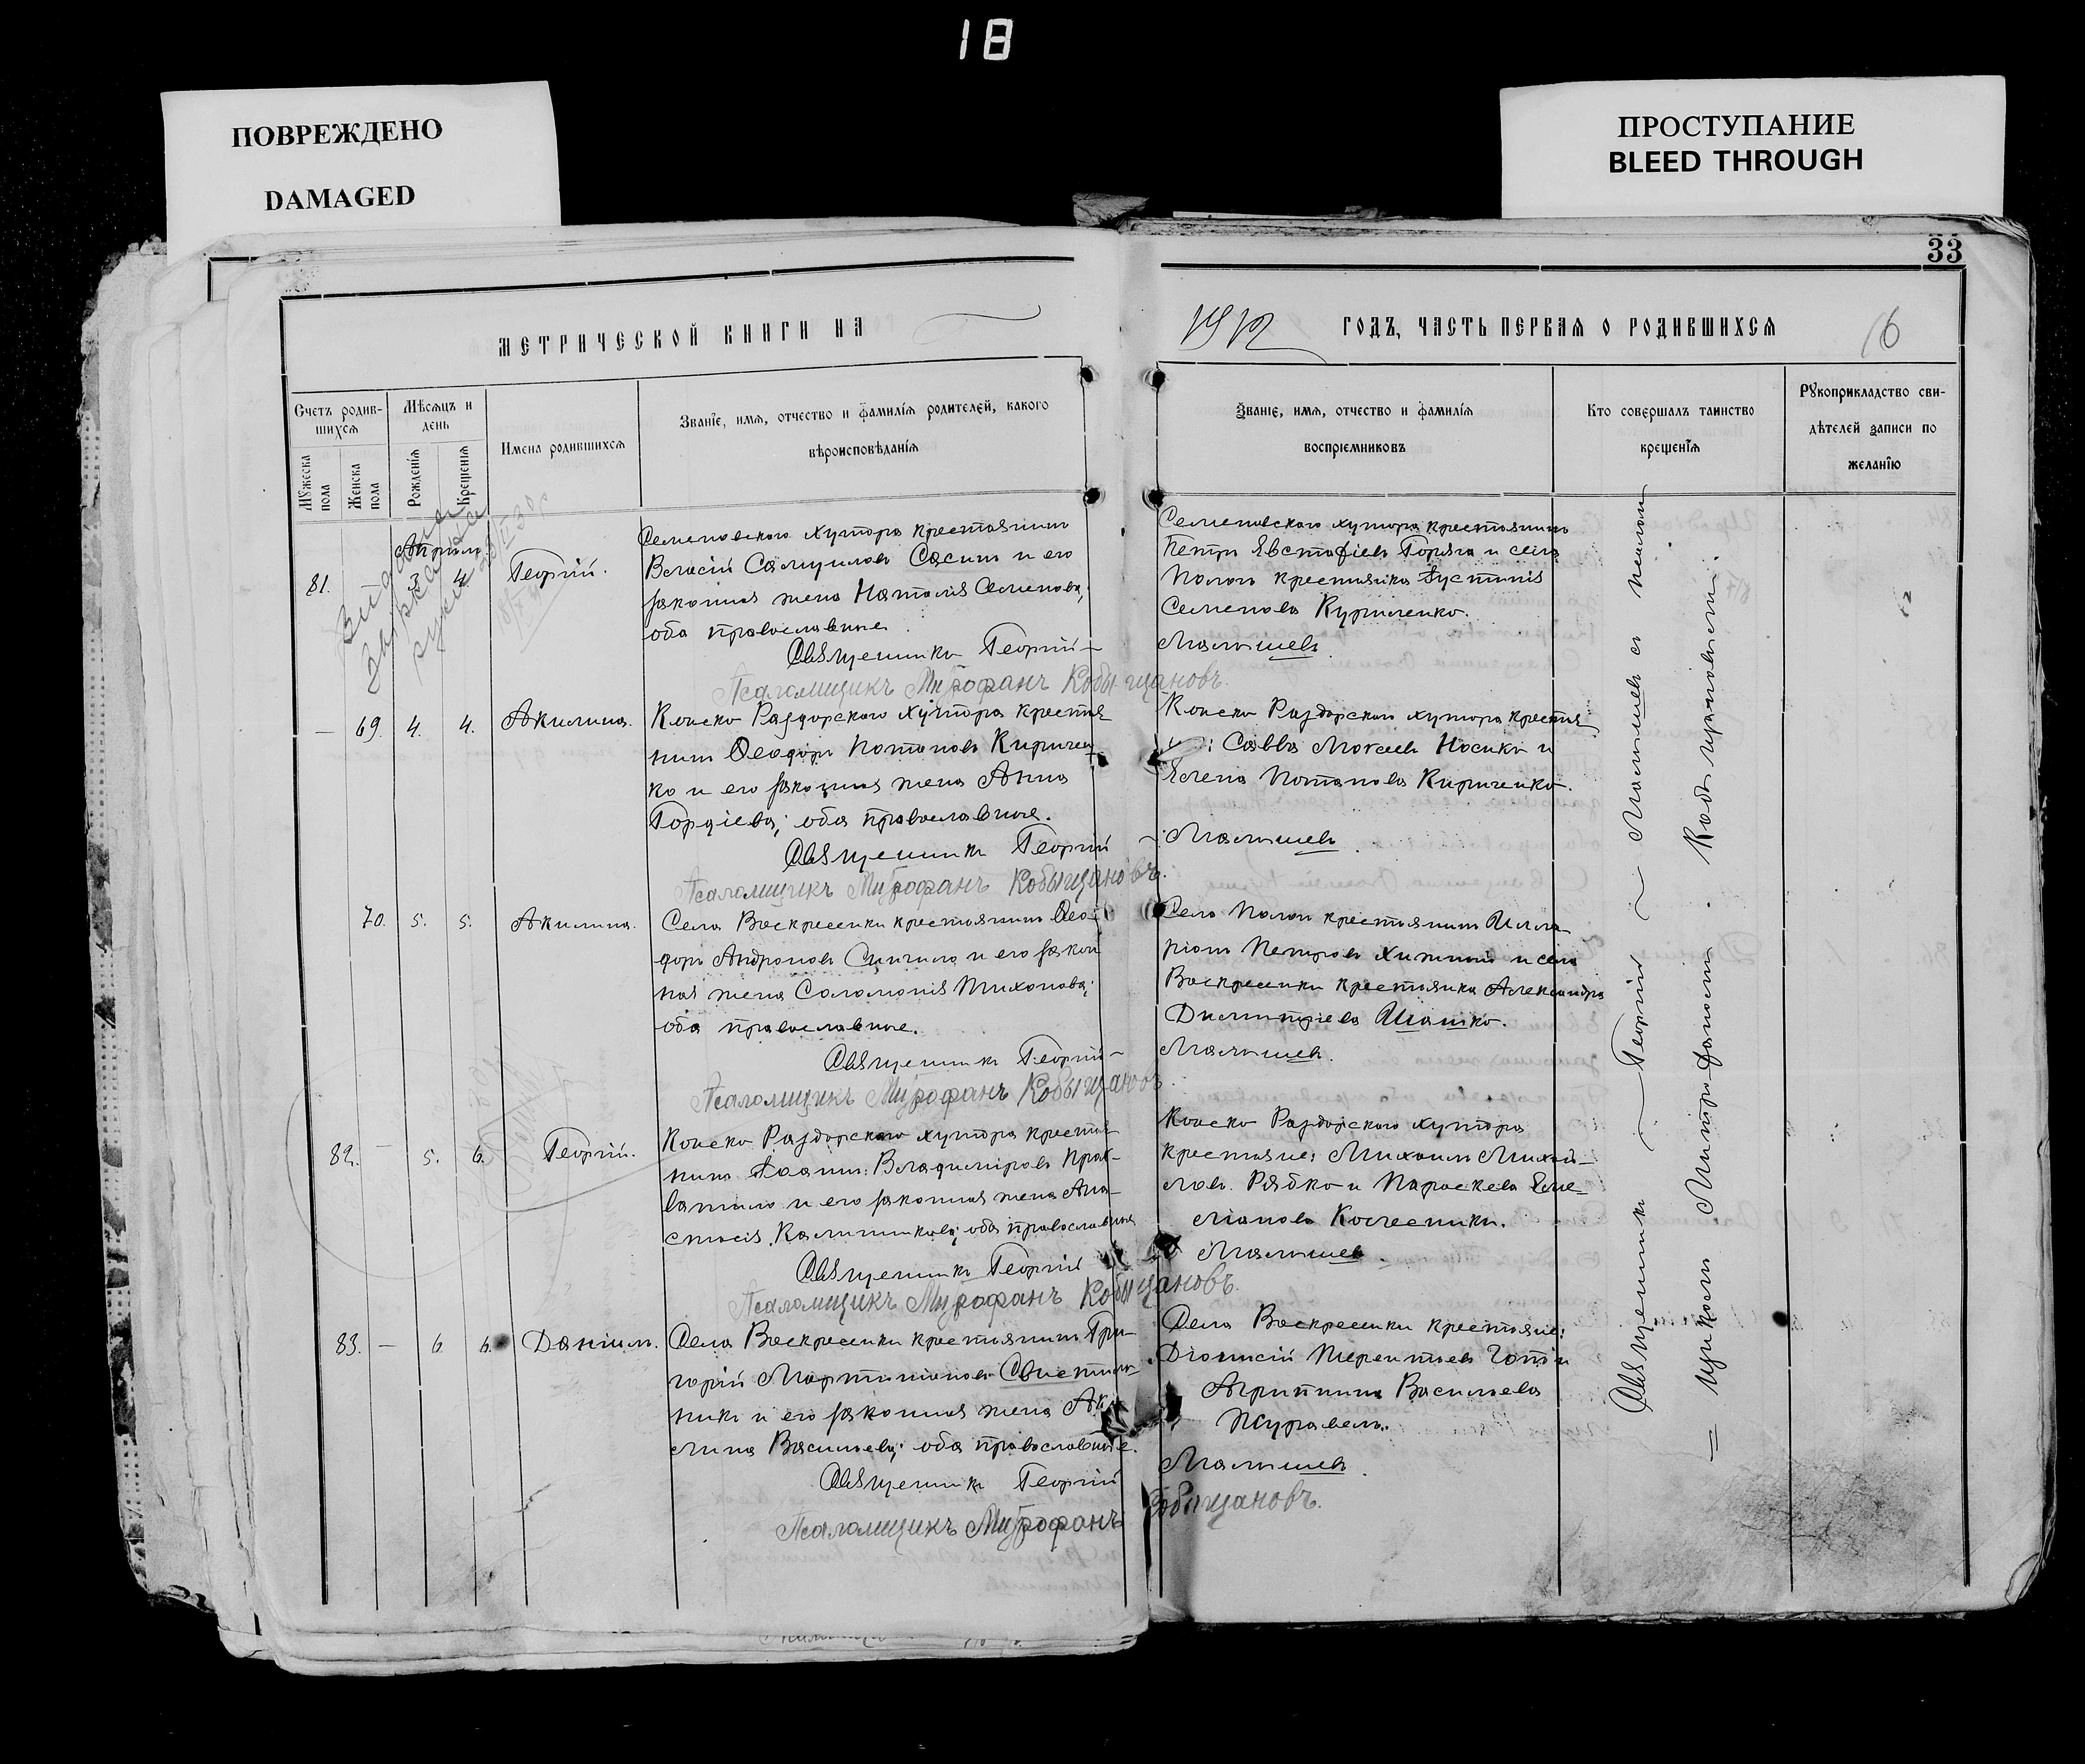 18
ПОВРЕЖДЕНО
DAMAGED
ПРОСТУПАНИЕ
BLEED THROUGH
33
МЕТРИЧЕСКОЙ КНИГИ НА
1912 ГОДЪ, ЧАСТЬ ПЕРВАЯ О РОДИВШИХСЯ
16
Счетъ родив-
шихся
Мужеска пола
Женска пола
Мѣсяцъ и
день
Рожденія
Крещенія
Имена родившихся
Званіе, имя, отчество и фамилія родителей, какого
вѣроисповѣданія
Званіе, имя, отчество и фамилія
воспріемниковъ
Кто совершалъ таинство
крещенія
Рукоприкладство сви-
дѣтелей записи по
желанію
81.
3 4
Георгій.
Семеновскаго хутора крестьянинъ
Власій Самуиловъ Сасинъ и его
законная жена Наталія Семенова,
оба православные
Священникъ Георгій
Псаломщикъ Митрофанъ Кобыщановъ.
Семеновскаго хутора крестьянинъ
Петръ Евстафіевъ Горяга и села
Пологъ крестьянка Іустинія
Семенова Куриленко.
Малышевъ.
— 69. 4. 4.
Акилина.
Конско Раздорскаго хутора крестья
нинъ Ѳеодоръ Потаповъ Киричен
ко и его законная жена Анна
Гордіева; оба православные.
Священникъ Георгій
Псаломщикъ Митрофанъ Кобыщановъ.
Конско Раздорскаго хутора крестья
Савва Моѵсеевъ Носикъ и
Елена Потапова Кириченко.
Малышевъ
70. 5. 5.
Акилина.
Села Воскресенки крестьянинъ Ѳео
доръ Андроновъ и его закон
ная жена Соломонія Тихонова;
оба православные.
Священникъ Георгій
Псаломщикъ Митрофанъ Кобыщановъ
Села Пологъ крестьянинъ Илла
ріонъ Петровъ и села
Воскресенки крестьянка Александра
Димитріева Ивашко.
Малышевъ.
82. — 5. 6.
Георгій.
Конско Раздорскаго хутора крестья
нинъ Іоаннъ Владиміровъ
и его законная жена Ана
стасія Калинникова; оба православные
Священникъ Георгій
Псаломщикъ Митрофанъ Кобыщановъ.
Конско Раздорскаго хутора
крестьяне: Михаилъ Михай
ловъ Рябко и Параскева Еме
ліанова Колесникъ.
Малышевъ.
83. — 6 6.
Даніилъ.
Села Воскресенки крестьянинъ Гри
горій Мартиніановъ Свистиль
никъ и его законная жена Аки
лина Васильева; оба православные.
Священникъ Георгій
Псаломщикъ Митрофанъ Кобыщановъ.
Села Воскресенки крестьяне:
Діонисій Терентіевъ и
Агриппина Васильева
Журавель.
Малышевъ.
Священникъ Георгій Малышевъ съ псалом
щикомъ Митрофаномъ Кобыщановымъ.